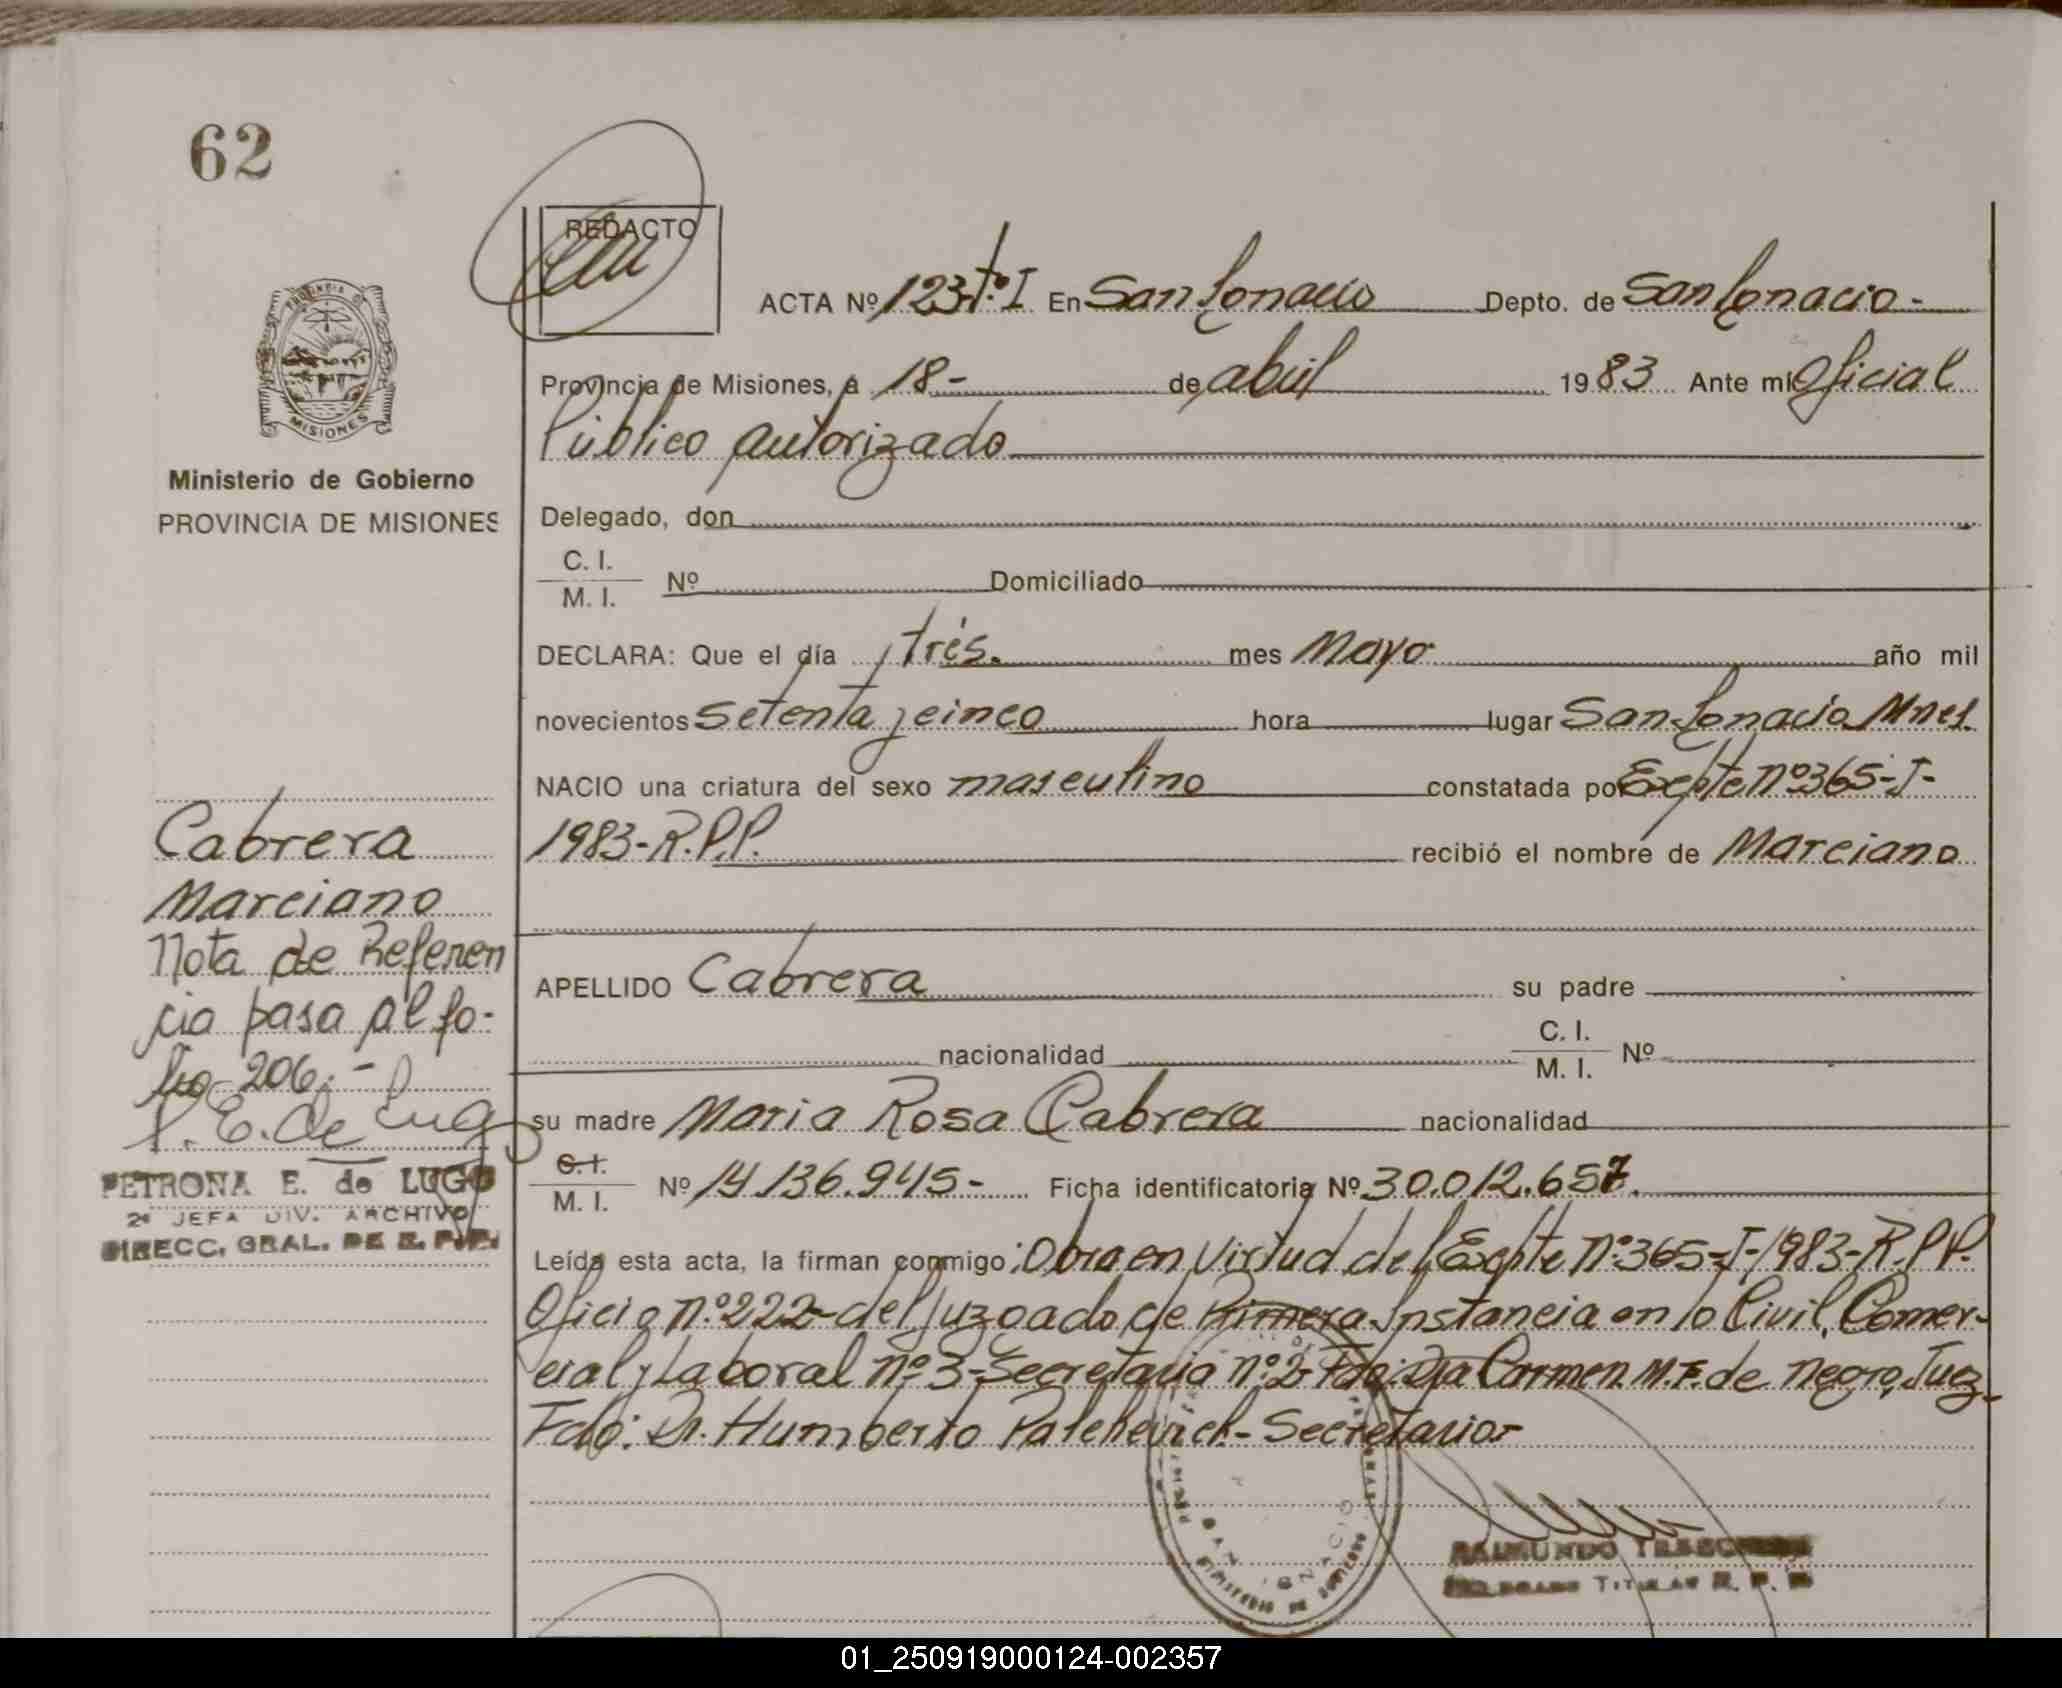 62
REDACTO
ACTA Nº 123-tº I En San Ignacio Depto. de San Ignacio-
Provincia de Misiones, a 18- de abril 1983 Ante mi Oficial
Público autorizado
Delegado, don
C. I.
M. I. Nº Domiciliado
DECLARA: Que el día tres. mes Mayo año mil
novecientos setenta y cinco hora lugar San Ignacio Mnes.
NACIO una criatura del sexo masculino constatada por Expte nº365-J-
1983-R.P.P. recibió el nombre de Marciano
APELLIDO Cabrera su padre
nacionalidad C. I.
M. I. Nº
su madre Maria Rosa Cabrera nacionalidad
C. I.
M. I. Nº 14.136.945- Ficha identificatoria Nº 30.012.657.
Leída esta acta, la firman conmigo: Obra en virtud del Expte nº365-J-1983-R.P.P.
Oficio nº222-del Juzgado de Primera Instancia en lo Civil, Comer-
cial y Laboral nº3-Secretaria nº2-Fdo: Dra Carmen M.F. de Negro, Juez-
Fdo: Dr. Humberto Patchevich-Secretario-
RAIMUNDO
TITULAR R. P. P.
MISIONES
Ministerio de Gobierno
PROVINCIA DE MISIONES
Cabrera
Marciano
Nota de Referen
cia pasa al fo-
lio 206.-
P. E. de Lugo
PETRONA E. de LUGO
2ª JEFA DIV. ARCHIVO
DIRECC. GRAL. DE R. P. P.
SAN IGNACIO
MINISTERIO DE GOBIERNO
01_250919000124-002357